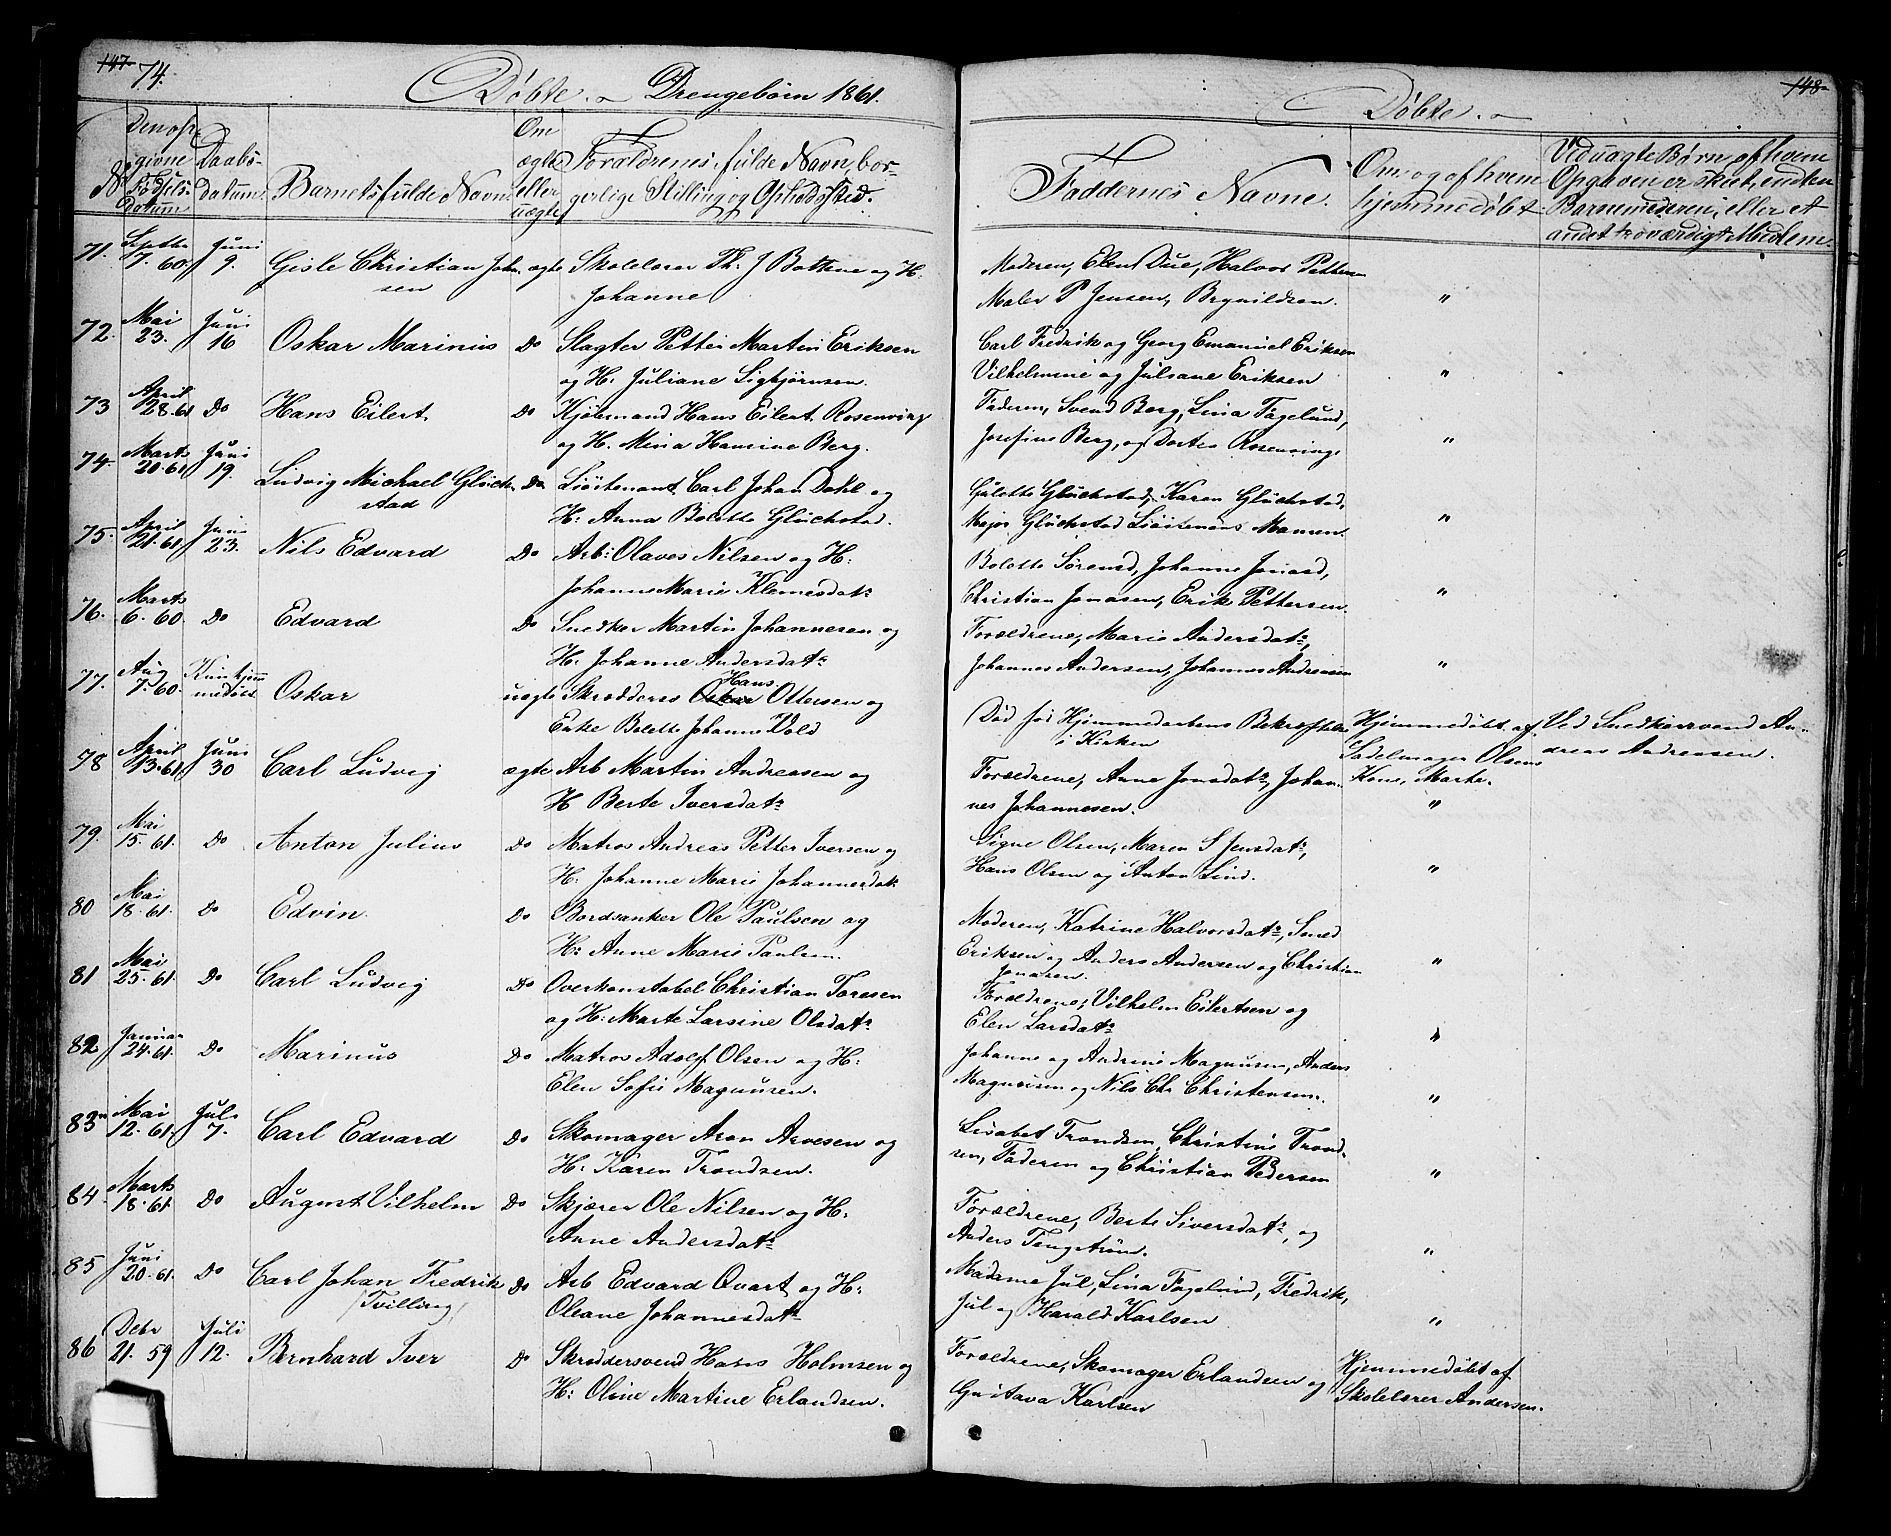 147. 74.
Døbte. Drengebørn 1861.
No
Den opgivne Fødselsdatum
Daabsdatum.
Barnets fulde Navn.
Om ægte eller uægte
Forældrenes fulde Navn, borgerlige Stilling og Opholdssted.
71. Septbr 7. 60. Juni 9. Gisle Christian Johnsen ægte Skolelærer Th: J Bottene og H.
Johanne
72. Mai 23. Juni 16 Oskar Marinius Do Slagter Petter Martin Eriksen
og H. Juliane Sigbjørnsen.
73 April 28. 61 Do Hans Eilert. Do Hans Eilert Rosenving
og H. Mina Hansine Berg.
74. Marts 20. 61 Juni 19. Ludvig Michael Glückstad Do Liöitenant Carl Johan Dahl og
H: Anna Bolette Glückstad.
75. April 21. 61 Juni 23. Nils Edvard Do Arb: Olaves Nilsen og H:
Johanne Marie Klemesdatr
76. Marts 6. 60. Do Edvard Do Snedker Martin Johannesen og
H: Johanne Andersdatr
77. Aug 7. 60. Kun hjemmedøbt Oskar uægte Skrædders Oskar Hans Ottersen og
Enke Bolette Johanne Vold
78 April 13. 61 Juni 30 Carl Ludvig ægte Arb Martin Andreasen og
H Berte Iversdatr
79. Mai 15. 61. Do Anton Julius Do Matros Andreas Petter Iversen og
H. Johanne Marie Johannesdatr
80 Mai 18. 61. Do Edvin. Do Bordsanker Ole Paulsen og
H: Anne Marie Paulsen.
81 Mai 25. 61. Do Carl Ludvig Do Overkonstabel Christian Toresen
og H: Marte Larsine Olsdatr
82 Januar 24. 61. Do Marinus Do Matros Adolf Olsen og H:
Elen Sofie Magnusen.
83 Mai 12. 61. Juli 7. Carl Edvard Do Skomager Aron Arvesen og
H: Karen Trondsen.
84. Marts 18. 61. Do August Vilhelm Do Skjærer Ole Nilsen og H:
Anne Andersdatr
85 Juni 20. 61. Do Carl Johan Fredrik Do Arb Edvard Qvart og H:
(Tvilling) Oleane Johannesdatr
86 Debr 21. 59 Juli 12. Bernhard Iver Do Skræddersvend Hans Holmsen og
H: Oline Martine Erlandsen.
148
Døbte.
Faddernes Navne.
Om og af hvem hjemmedøbt.
Ved uægte Børn, af hvem Opgaven er skeet, enten Barnemoderen, eller et andet troværdigt Medlem.
Moderen, Elen Due, Halvor Pettersen
Maler P Jensen, Brynildsen. "
Carl Fredrik og Georg Emanuel Eriksen
Vilhelmine og Julsane Eriksen "
Faderen, Svend Berg, Lina Fagelund,
Josefine Berg, og Dortea Rosenvinge "
Glückstad, Karen Glückstad,
Major Glückstad "
Bolette Sørensd, Johanne Jonasd,
Christian Jonasen, Erik Pettersen. "
Forældrene, Marie Andersdatr,
Johannes Andersen, Johannes Andreasen "
Død før Hjemmedaabens Bekræftelse Hjemmedøbt af Ved Snedkersvend An-
i Kirken Sadelmager Olsens dreas Andreasen.
Forældrene, Anne Jonsdatr, Johan- Kone, Marte.
nes Johannesen. "
Signe Olsen, Maren S Jensdatr,
Hans Olsen og Anton Lind. "
Moderen, Katrine Halvorsdatr, Smed
Eriksen og Anders Andersen og Christian
Jonasen. "
Forældrene, Vilhelm Eilertsen og
Elen Larsdatr "
Johanne og Andrine Magnusen, Anders
Magnusen og Nils Chr Christensen. "
Lisabet Trondsen, Christine Trond-
sen, Faderen og Christian Pedersen "
Forældrene, Berte Siversdatr, og
Anders Tengstrøm. "
Madame Jul, Lina Fagelund, Fredrik,
Jul og Harald Karlsen "
Forældrene, Skomager Erlandsen og Hjemmedøbt af
Gustava Karlsen Skolelærer Andersen.